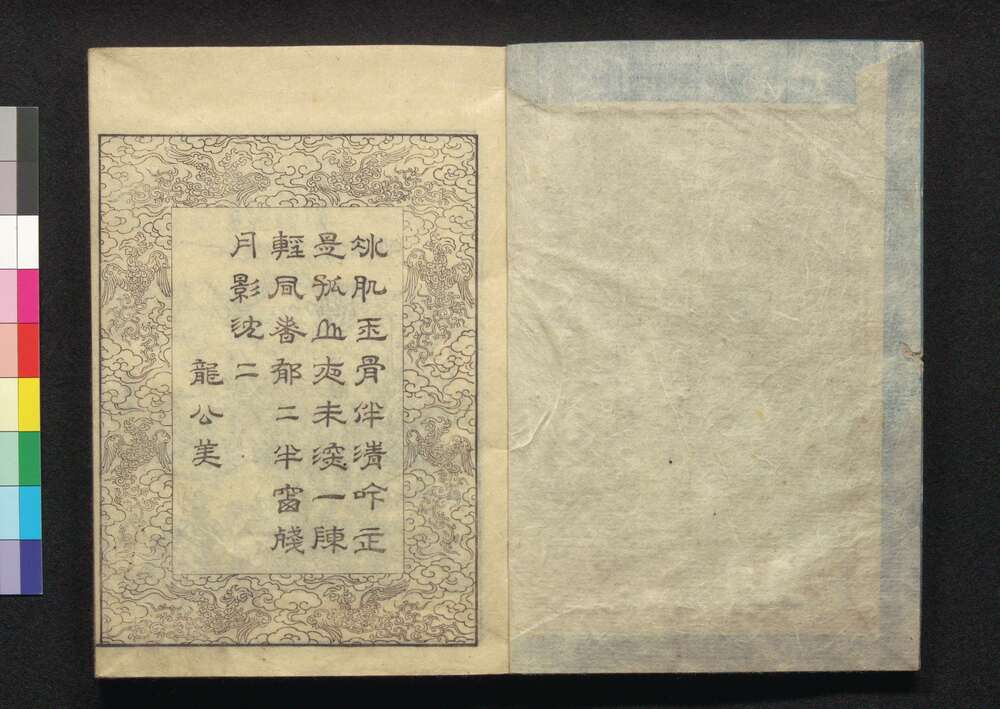 冰肌玉骨伴清吟正
是孤山夜未深一陳
輕風香郁二半窗殘
月影沈二
龍公美